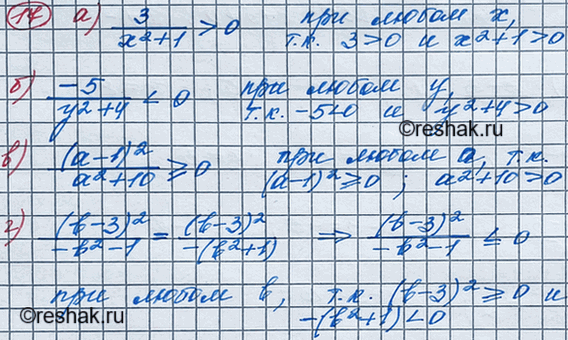 14 а) 3/(x²+1) > 0 при любом x,
т.к. 3>0 и x²+1>0
б) -5/(y²+4) < 0 при любом y,
т.к. -5<0 и y²+4>0
©reshak.ru
в) (a-1)²/(a²+10) ≥ 0 при любом a, т.к.
(a-1)² ≥ 0 ; a²+10>0
г) (b-3)²/(-b²-1) = (b-3)²/(-(b²+1)) ⇒ (b-3)²/(-b²-1) ≤ 0
при любом b, т.к. (b-3)² ≥ 0 и
-(b²+1)<0
©reshak.ru